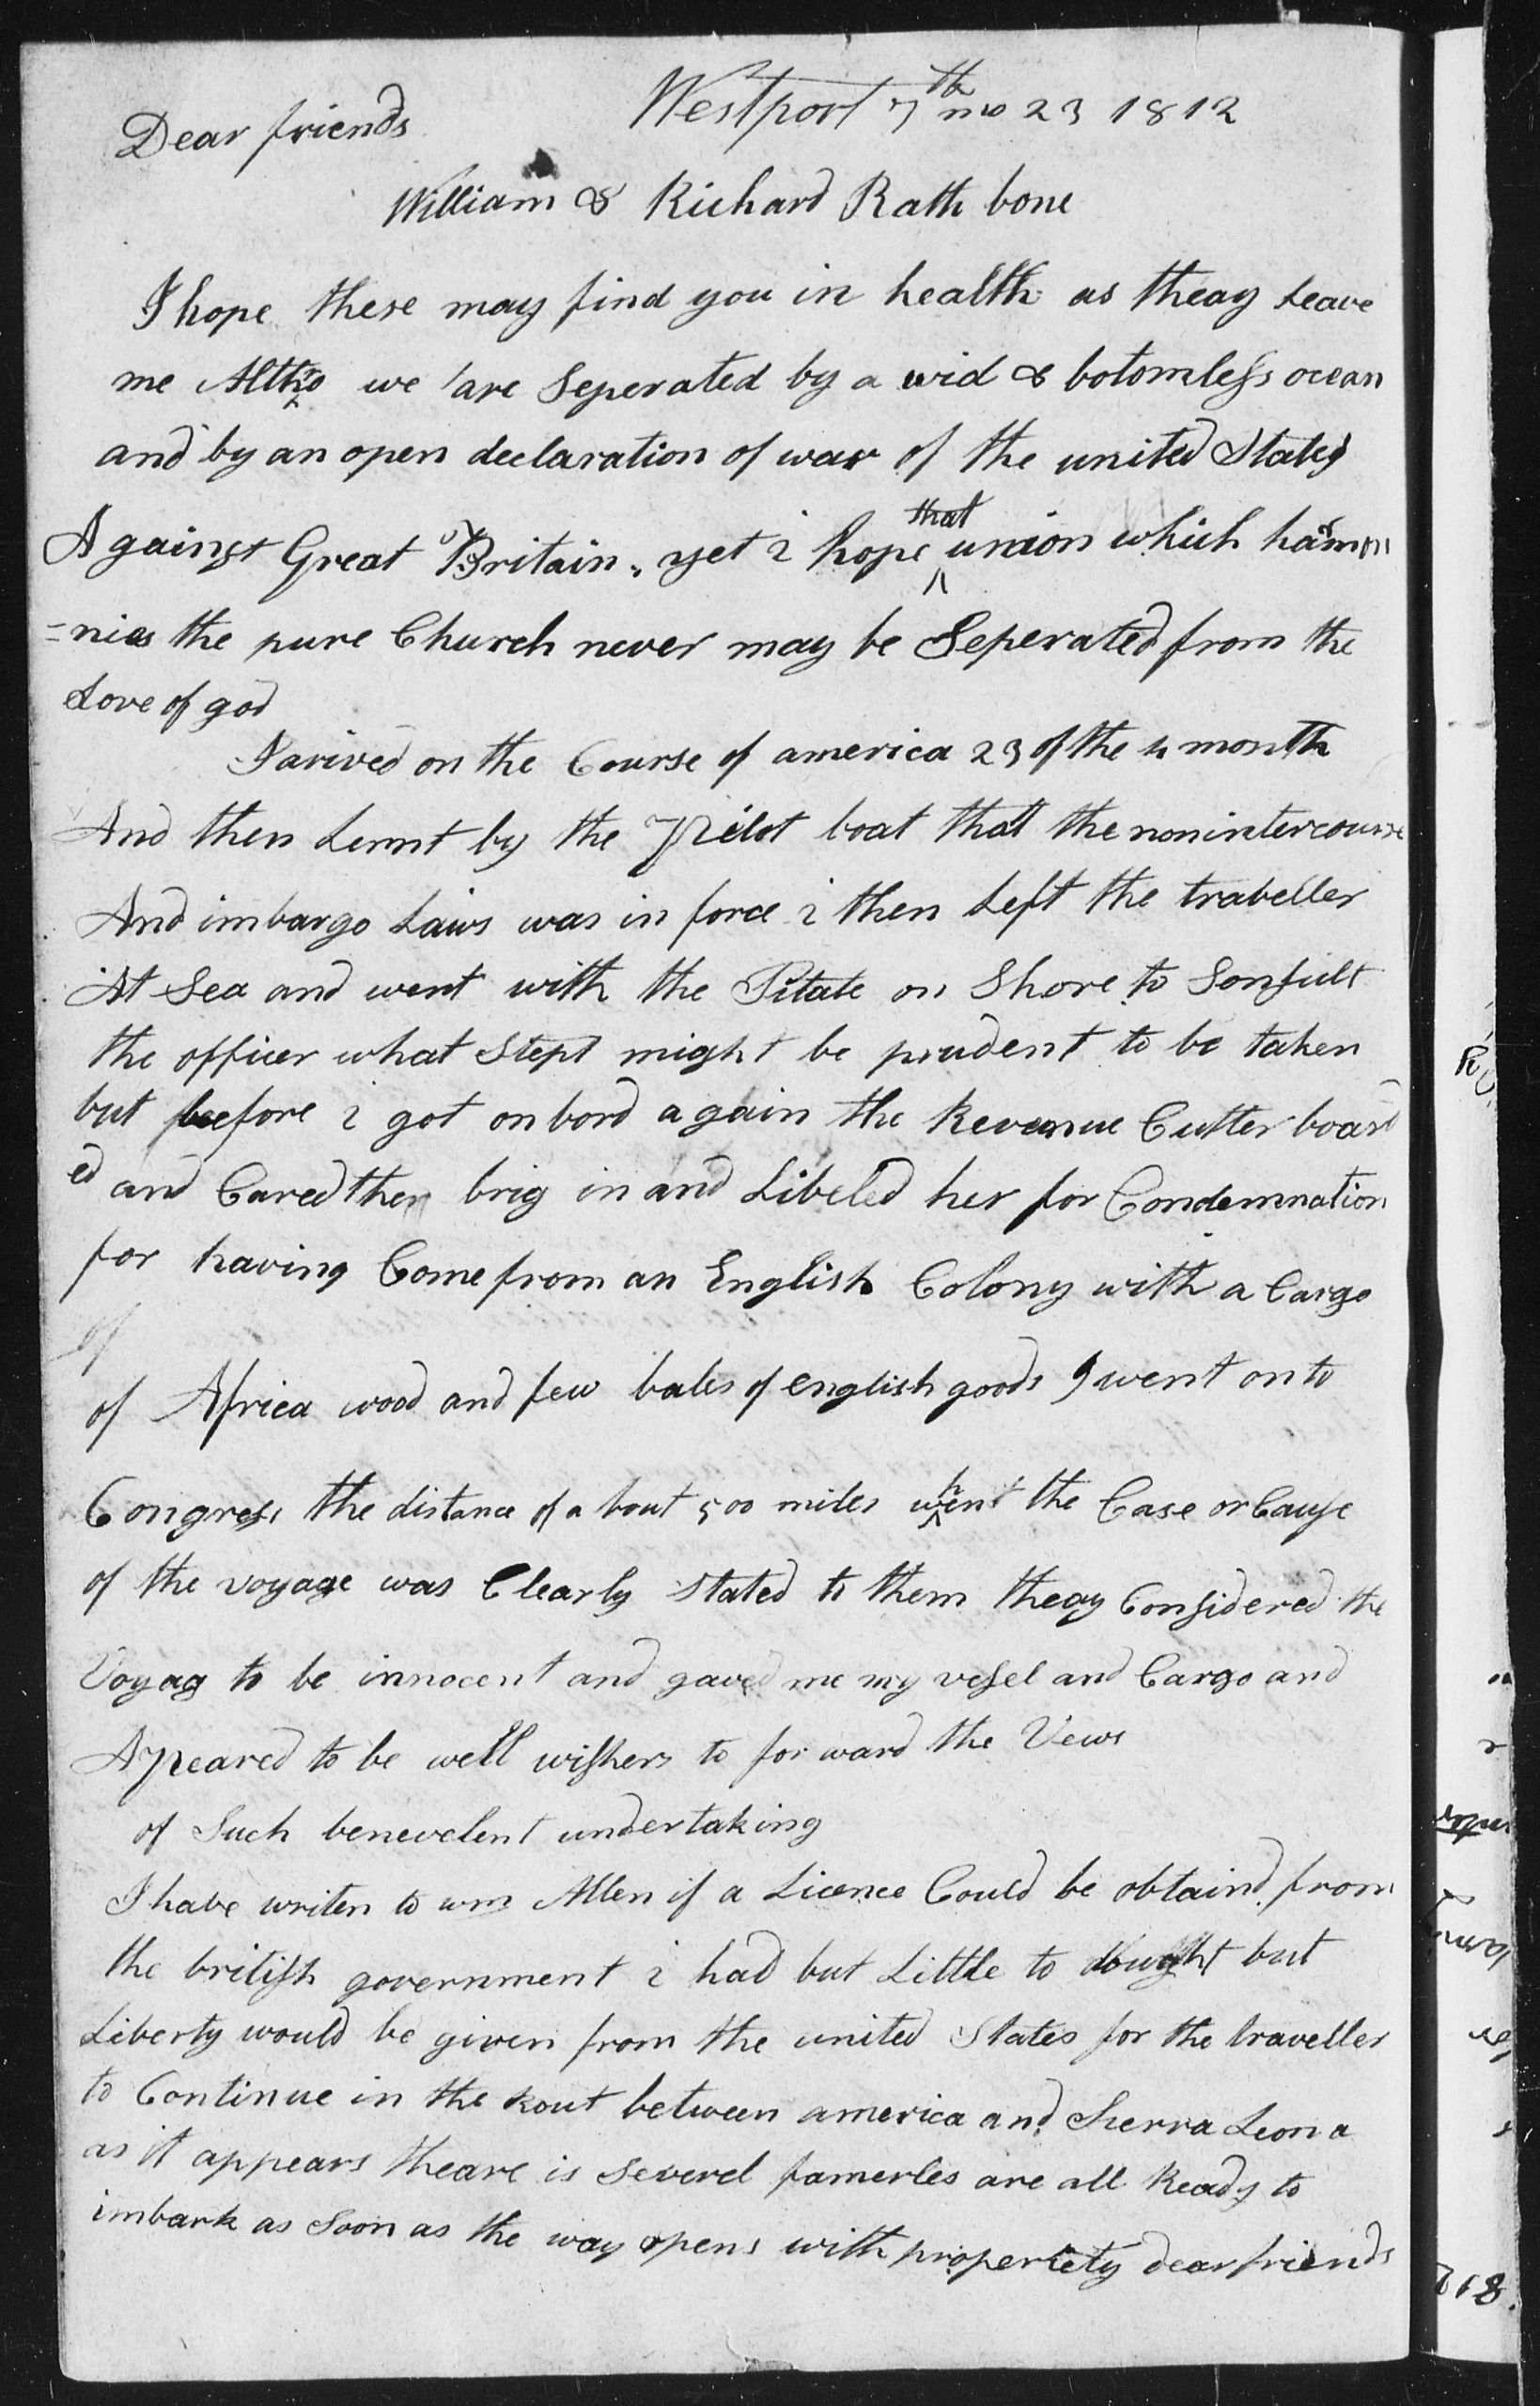 Westport 7th mo 23 1812
Dear friends
William & Richard Rath bone
I hope these may find you in health as theay Leave
me Altho we are Seperated by a wid & botomless ocean
and by an open declaration of war of the united States
Against Great Britain, yet i hope that union which harmo
=nies the pure Church never may be Seperated from the
Love of god
I arived on the Course of america 23 of the 4 month
And then Lernt by the Pilot boat that the nonintercourse
And imbargo Laws was in force i then Left the traveller
At Sea and went with the on Shore to Consult
the officer what Stept might be prudent to be taken
but beefore i got on bord again the Revenue Cutter board
ed and Cared then brig in and Libeled her for Condemnation
for having Come from an English Colony with a Cargo
of
of Africa wood and few bales of english goods I went on to
Congress the distance of a bout 500 miles when the Case or Cause
of the voyage was Clearly Stated to them theay Considered the
Voyag to be innocent and gaved me my vessel and Cargo and
Apeared to be well wishers to for ward the Vews
of Such benevelent undertaking
I have writen to wm Allen if a Licence Could be obtaind from
the british government i had but Little to dought but
Liberty would be given from the united States for the traveller
to Continue in the Rout between america and Sierra Leona
as it appears theare is Severel famerles are all Ready to
imbark as Soon as the way opens with properiety dear friends